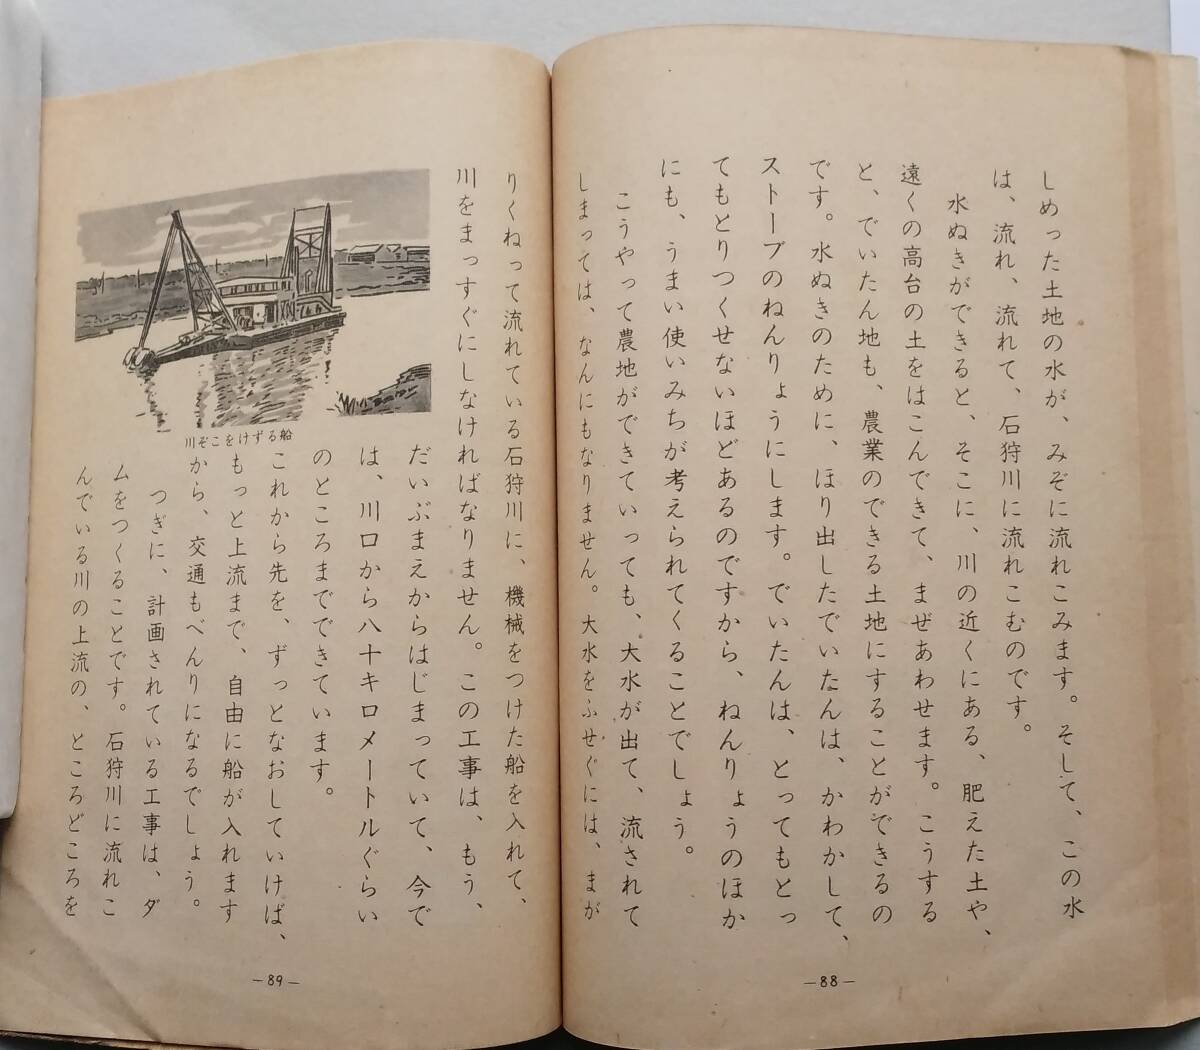 しめった土地の水が、みぞに流れこみます。そして、この水
は、流れ、流れて、石狩川に流れこむのです。
水ぬきができると、そこに、川の近くにある、肥えた土や、
遠くの高台の土をはこんできて、まぜあわせます。こうする
と、でいたん地も、農業のできる土地にすることができるの
です。水ぬきのために、ほり出したでいたんは、かわかして、
ストーブのねんりょうにします。でいたんは、とってもとっ
てもとりつくせないほどあるのですから、ねんりょうのほか
にも、うまい使いみちが考えられてくることでしょう。
こうやって農地ができていっても、大水が出て、流されて
しまっては、なんにもなりません。大水をふせぐには、まが
―88―
りくねって流れている石狩川に、機械をつけた船を入れて、
川をまっすぐにしなければなりません。この工事は、もう、
だいぶまえからはじまっていて、今で
は、川口から八十キロメートルぐらい
のところまでできています。
これから先を、ずっとなおしていけば、
もっと上流まで、自由に船が入れます
から、交通もべんりになるでしょう。
つぎに、計画されている工事は、ダ
ムをつくることです。石狩川に流れこ
んでいる川の上流の、ところどころを
川ぞこをけずる船
―89―